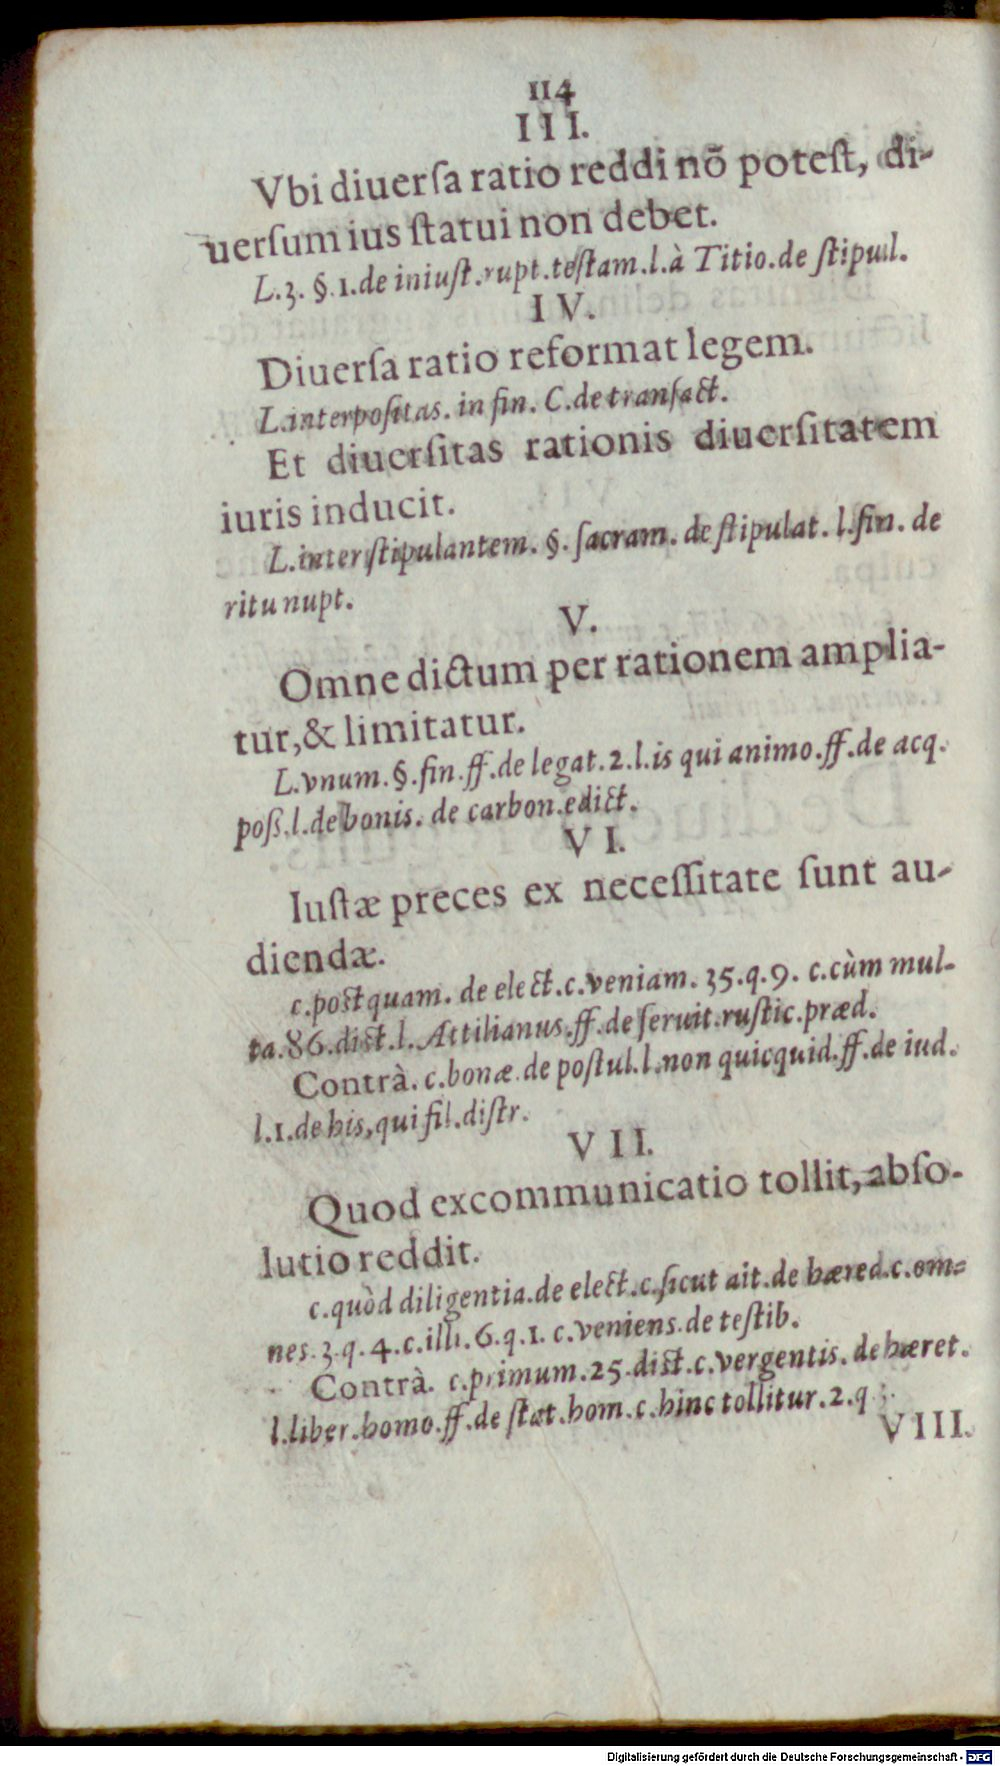 114
III.
Vbi diuerſa ratio reddi nõ poteſt, di-
uerſum ius ſtatui non debet.
L.3. §.1.de iniuſt.rupt.teſtam.l.à Titio.de ſtipul.
IV.
Diuerſa ratio reformat legem.
L.interpoſitas. in fin. C.de tranſact.
Et diuerſitas rationis diuerſitatem
iuris inducit.
L.inter ſtipulantem. §. ſacram. de ſtipulat. l.fin. de
ritu nupt.
V.
Omne dictum per rationem amplia-
tur,& limitatur.
L.vnum.§.fin.ff.de legat.2.l.is qui animo.ff.de acq.
poß.l.de bonis. de carbon.edict.
VI.
Iuſtæ preces ex neceſſitate ſunt au-
diendæ.
c.poſtquam. de elect.c.veniam. 35.q.9. c.cùm mul-
ta.86.diſt.l.Attilianus.ff.de ſeruit.ruſtic.præd.
Contrà. c.bonæ.de poſtul.l.non quicquid.ff.de iud.
l.1.de his,qui fil.diſtr.
VII.
Quod excommunicatio tollit,abſo-
lutio reddit.
c.quòd diligentia.de elect.c.ſicut ait.de hæred.c.om-
nes.3.q.4.c.illi.6.q.1. c.veniens.de teſtib.
Contrà. c.primum.25.diſt.c.vergentis.de hæret.
l.liber.homo.ff.de ſtat.hom.c.hinc tollitur.2.q
VIII.
Digitalisierung gefördert durch die Deutsche Forschungsgemeinschaft - DFG